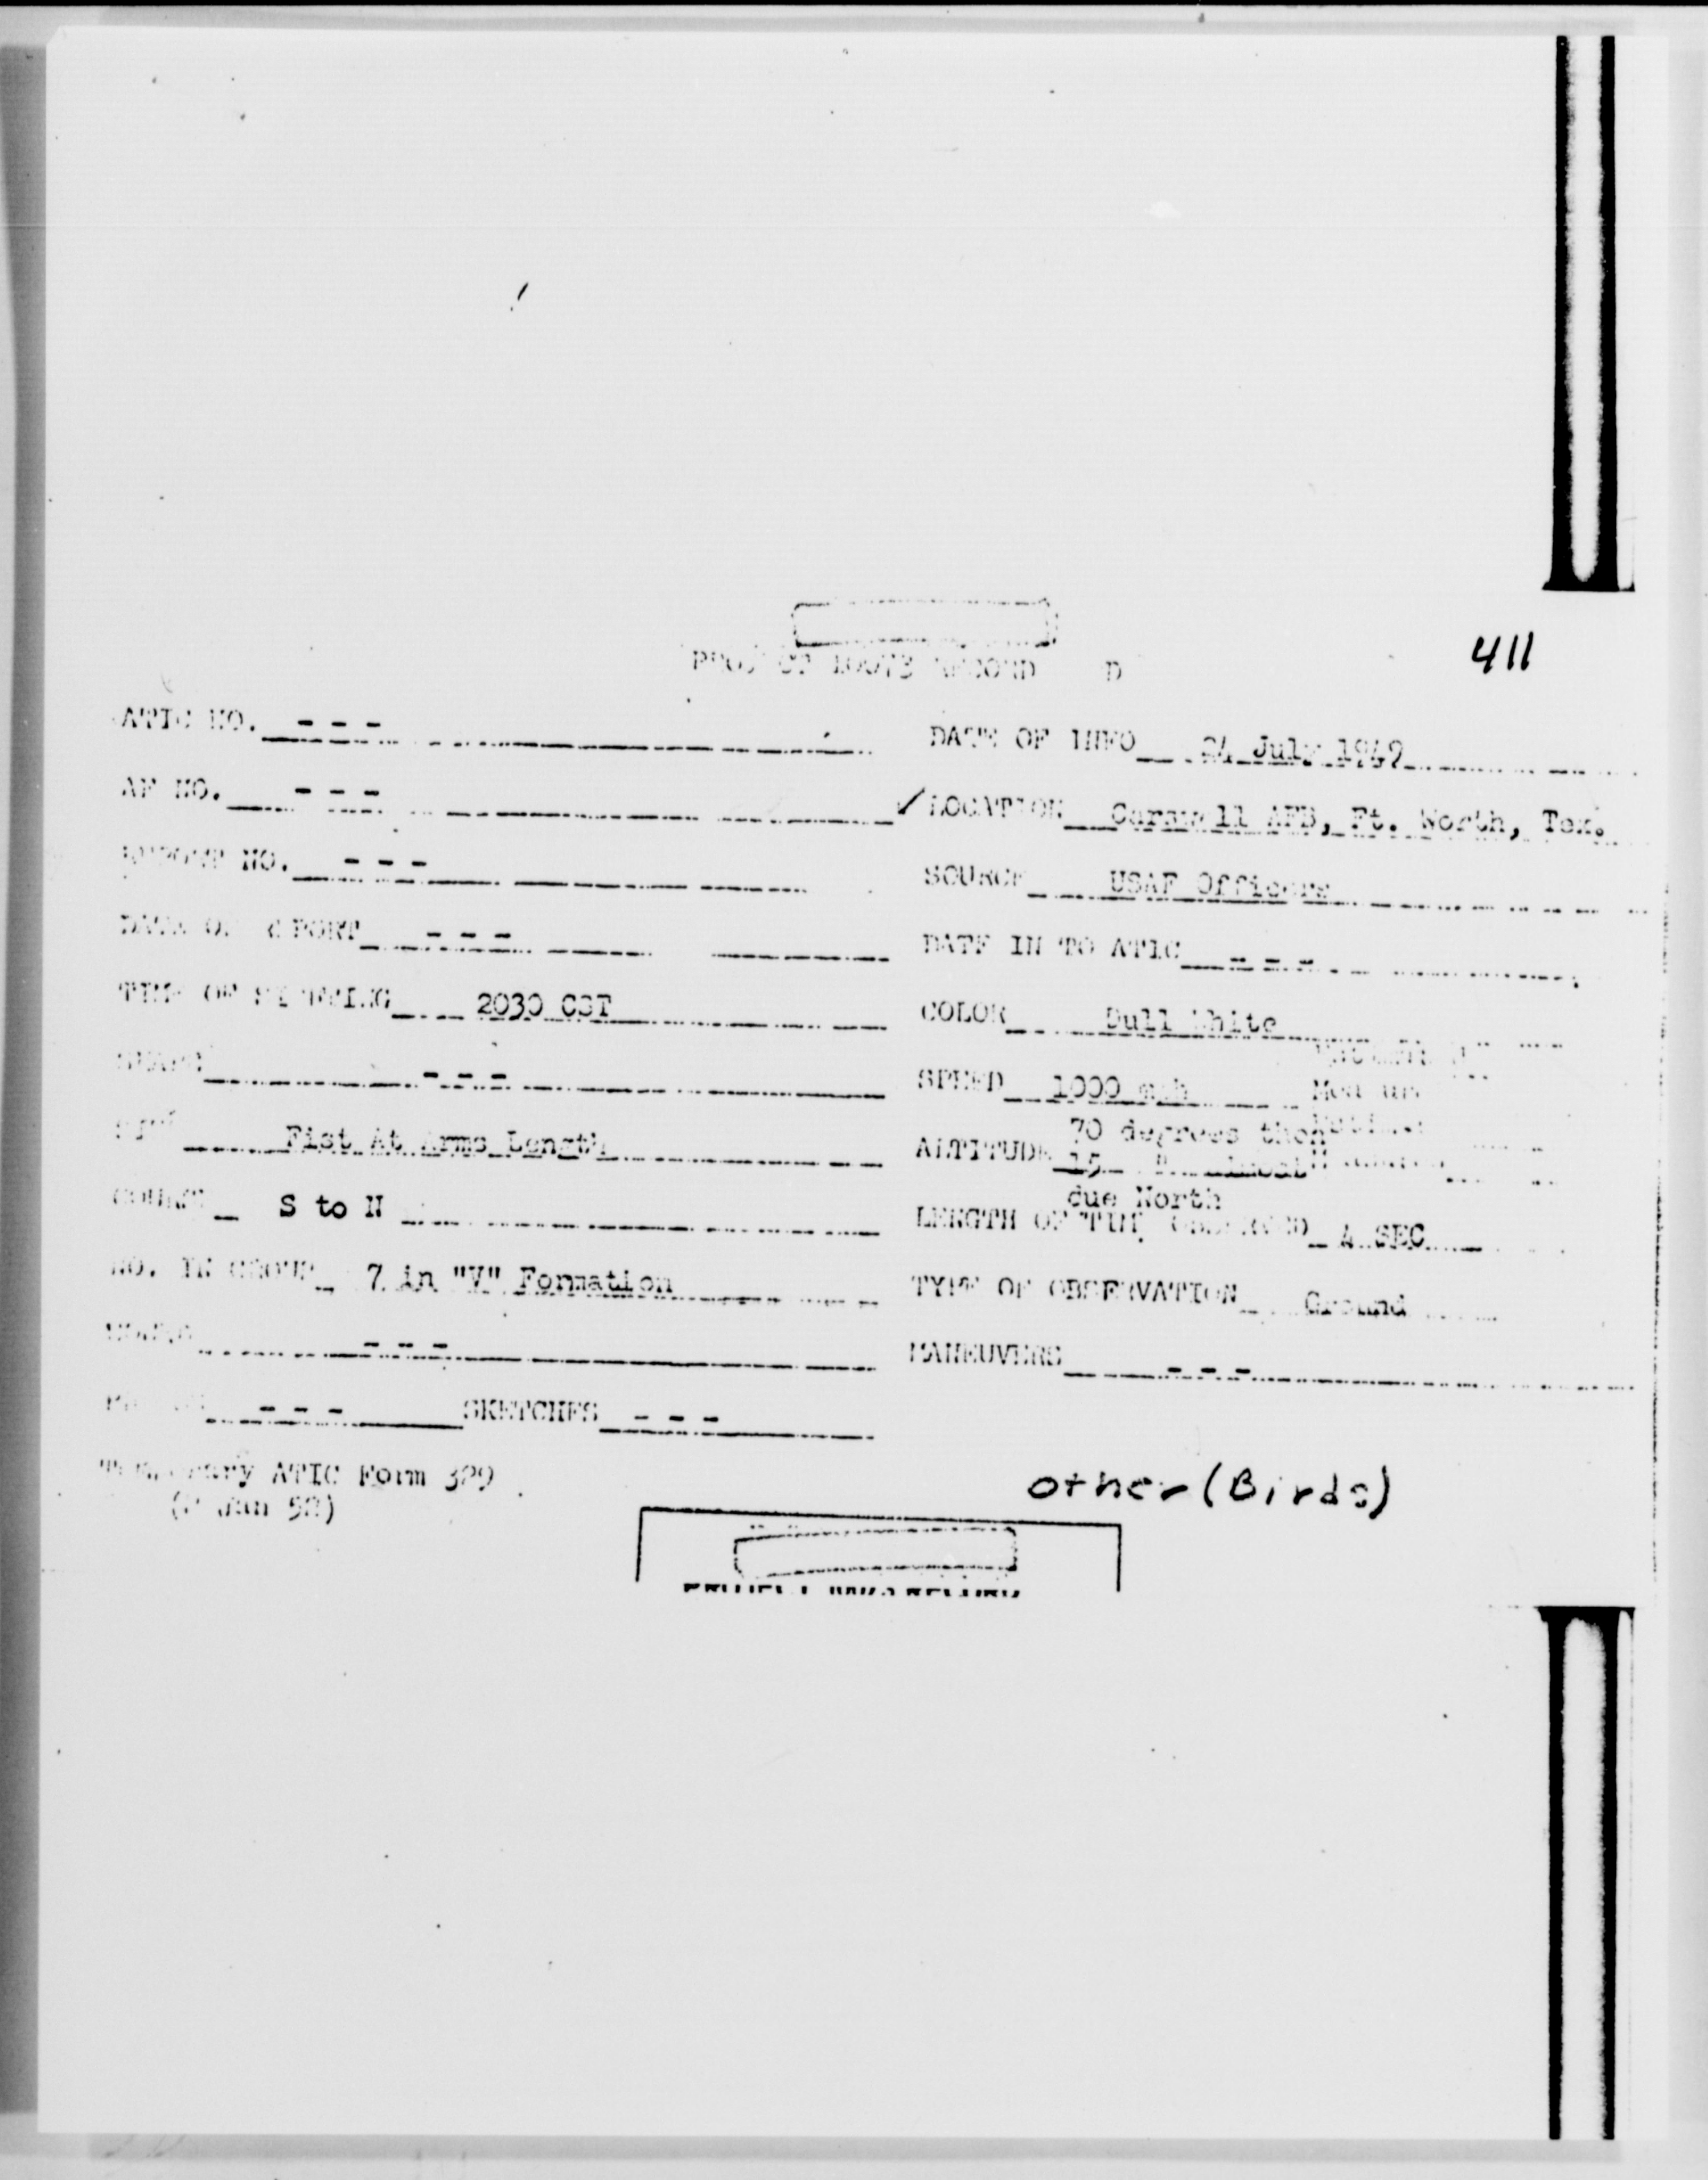 411
PROJECT 10073 RECORD
ATIC NO. - - -
DATE OF INFO 24 July 1949
AF NO. - - -
✓ LOCATION Carswell AFB, Ft. Worth, Tex.
REPORT NO. - - -
SOURCE USAF Officers
DATE OF REPORT - - -
DATE IN TO ATIC - - -
TIME OF SIGHTING 2030 CST
COLOR Dull White
SHAPE - - -
SPEED 1000 mph
SIZE Fist At Arms Length
ALTITUDE 70 degrees then
15 " almost
due North
COURSE S to N
LENGTH OF TIME OBSERVED 4 SEC
NO. IN GROUP 7 in "V" Formation
TYPE OF OBSERVATION Ground
SOUND - - -
MANEUVERS - - -
PHOTOS - - - SKETCHES - - -
Temporary ATIC Form 329
(2 Jan 52)
other (Birds)
PROJECT 10073 RECORD